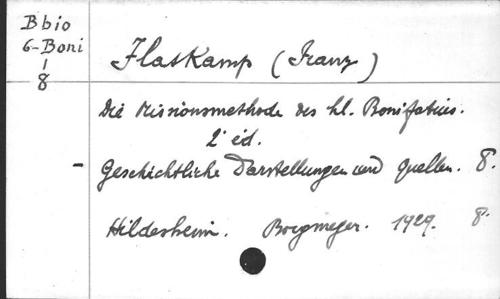 B bio
6-Boni
1
8
Flaskamp (Franz)
Die Missionsmethode des hl. Bonifatius.
2e éd.
- Geschichtliche Darstellungen und Quellen. 8.
Hildesheim. Borgmeyer. 1929. 8.